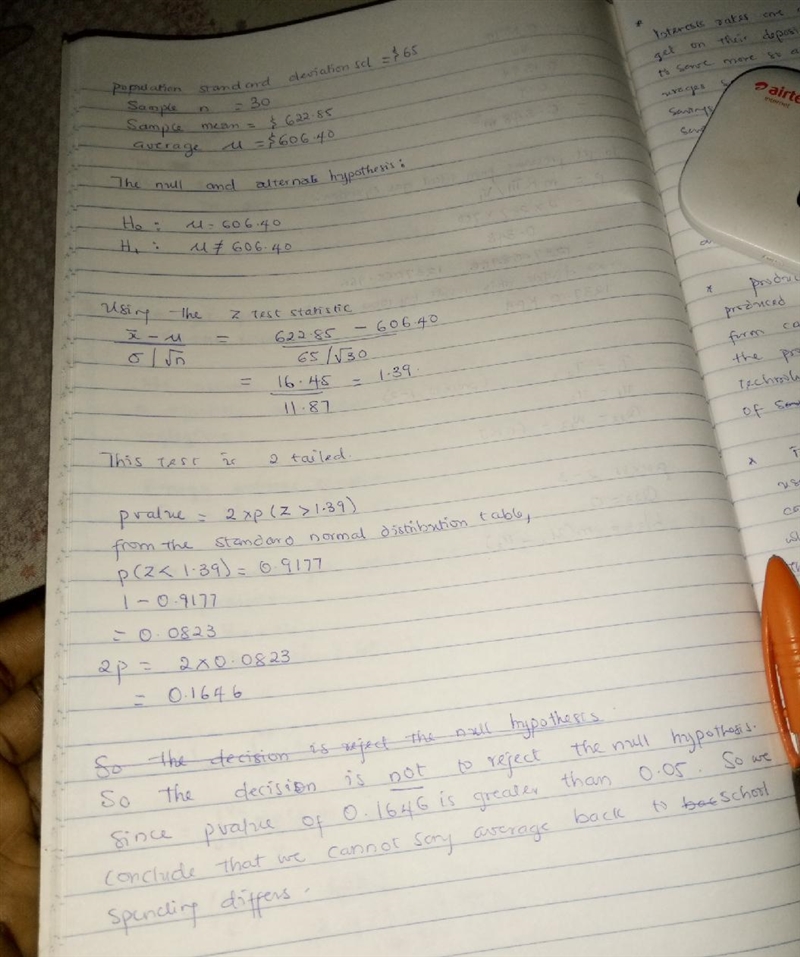 population standard deviation sd = $65
Sample n = 30
Sample mean = $622.85
average μ = $606.40
The null and alternate hypothesis:
H₀: μ = 606.40
H₁: μ ≠ 606.40
Using the z test statistic
x̄ - μ / σ/√n = 622.85 - 606.40 / 65/√30
= 16.45 / 11.87 = 1.39.
This test is 2 tailed.
pvalue = 2xp(Z > 1.39)
from the standard normal distribution table,
p(Z < 1.39) = 0.9177
1 - 0.9177
= 0.0823
2p = 2x0.0823
= 0.1646
So the decision is reject the null hypothesis.
So the decision is not to reject the null hypothesis.
since pvalue of 0.1646 is greater than 0.05. So we
conclude that we cannot say average back to school
spending differs.
* Interests rates are
get on their depos
to save more so a
airte
internet
x produc
produced
form ca
the pro
Technolo
of
x